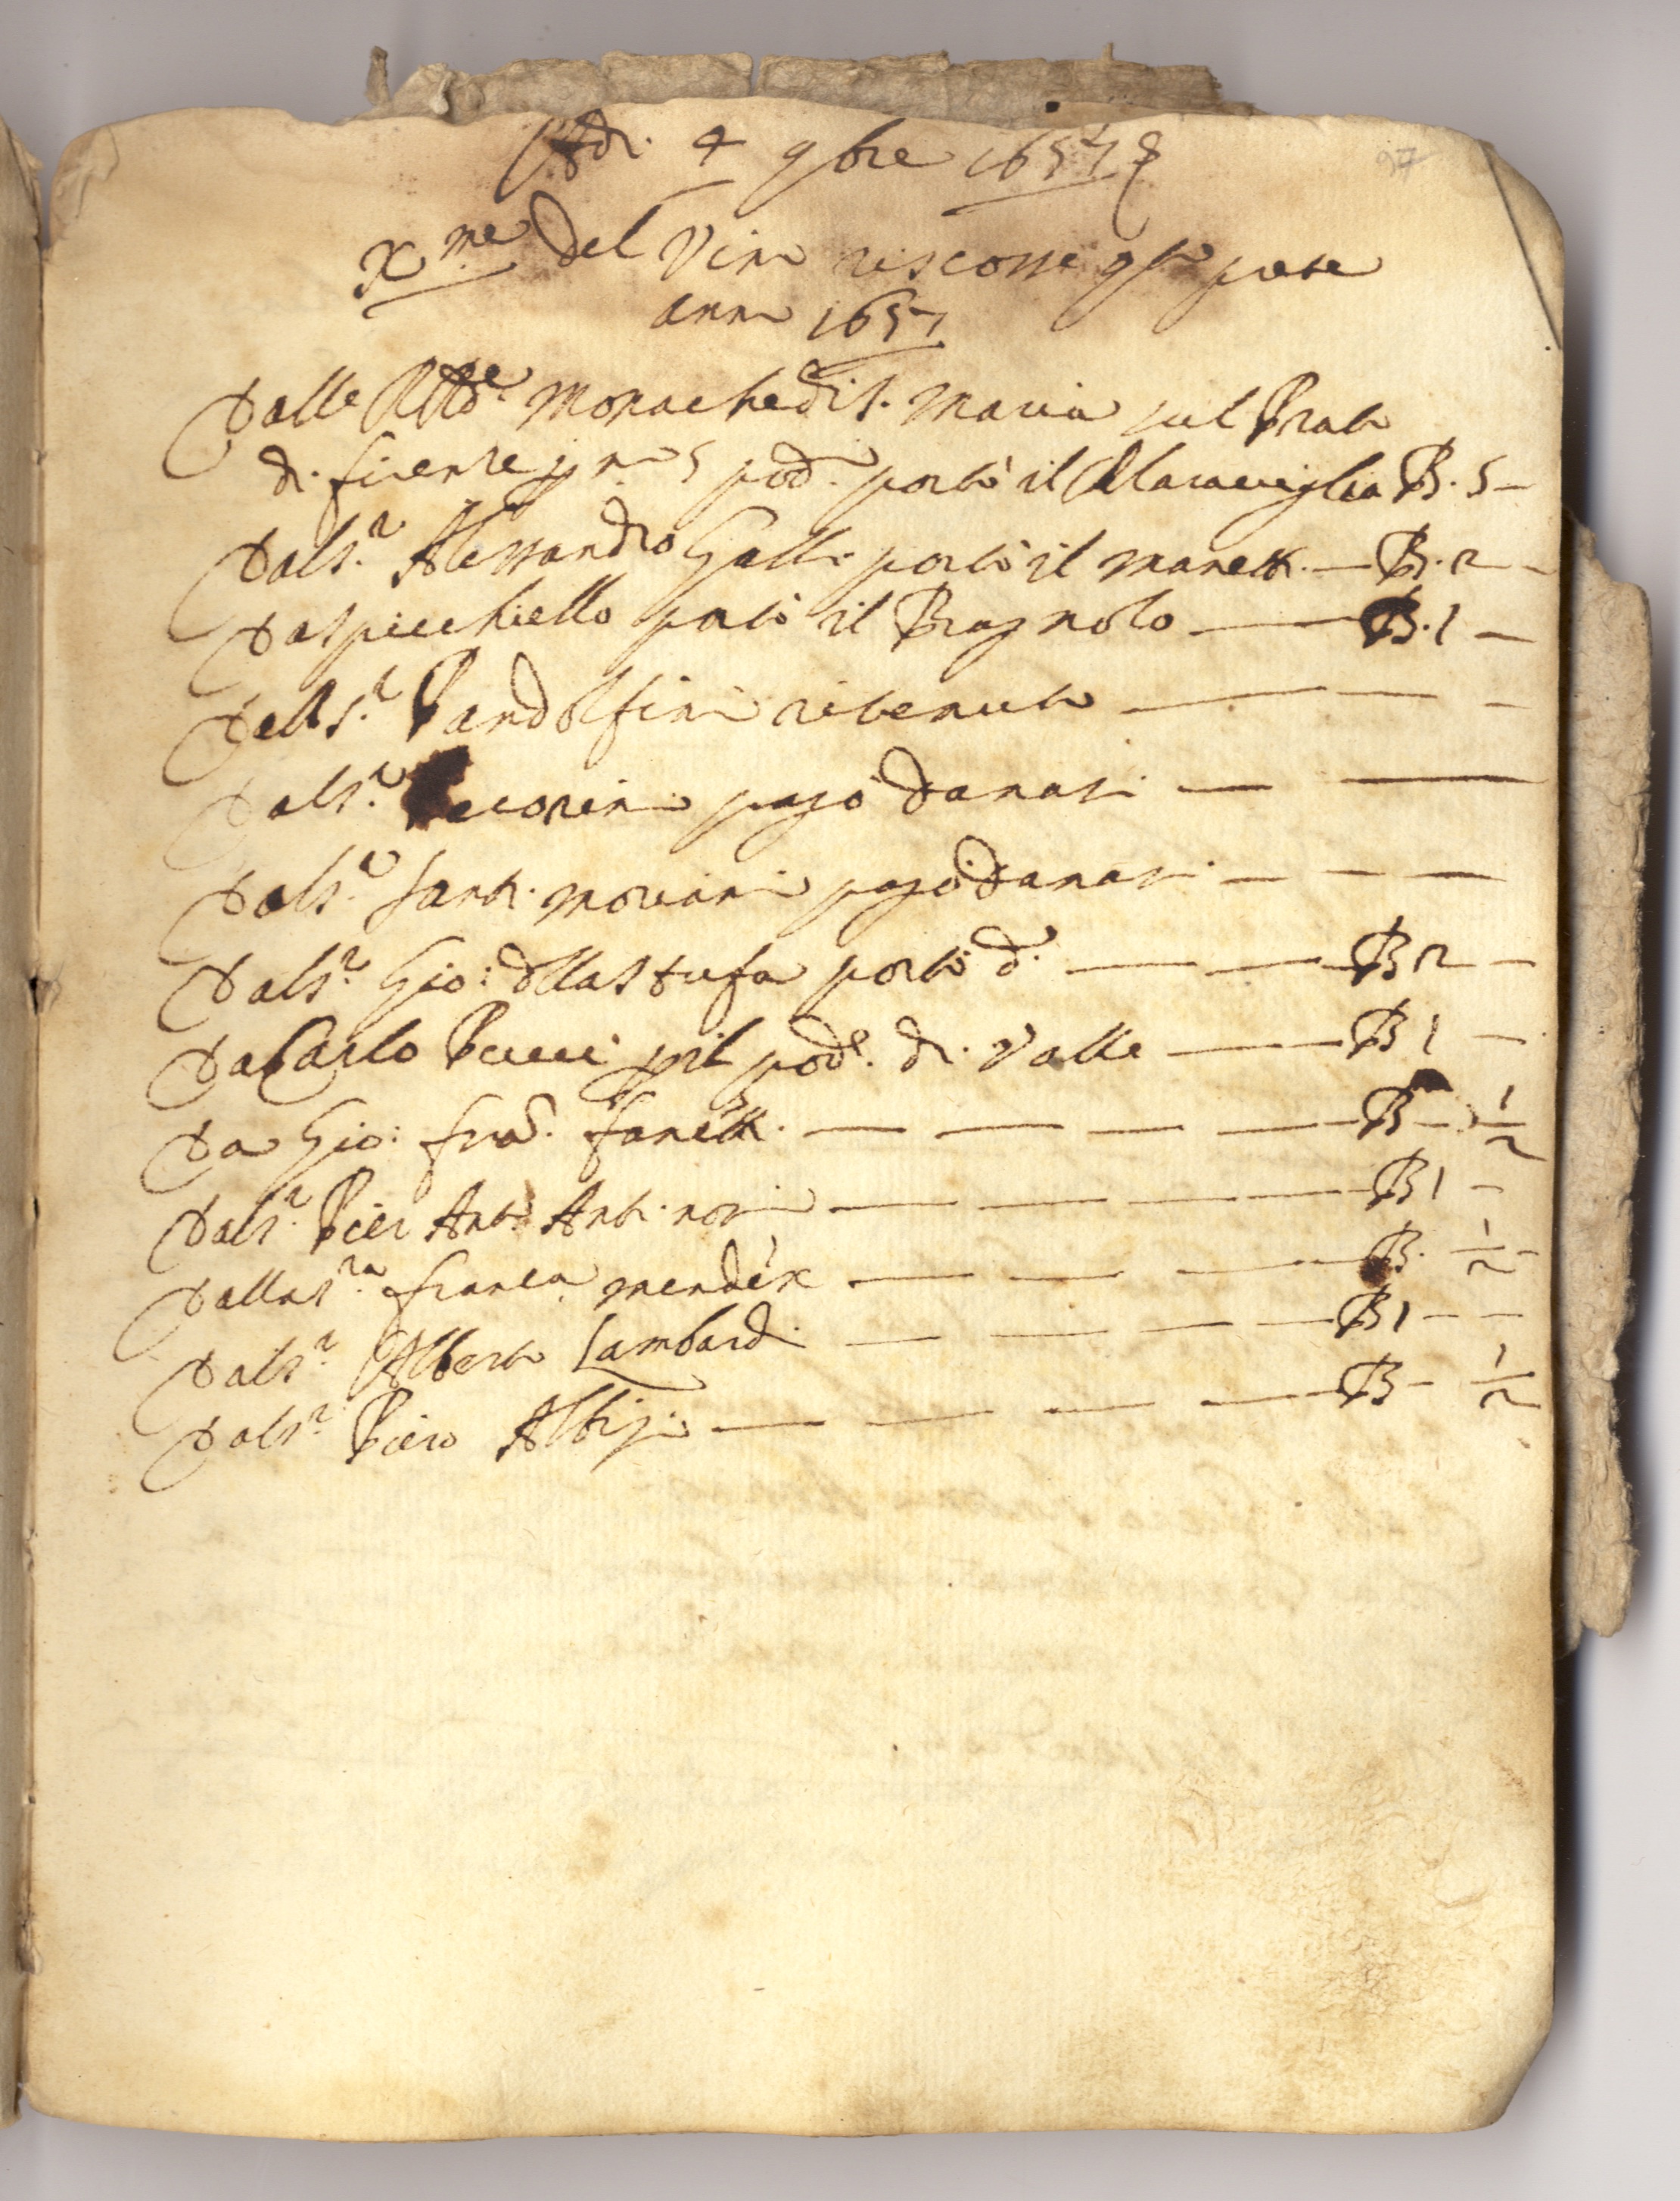 Adi. 4 9bre 1657
Xme del Vino riscosse pte
anno 1657
Dalle Rde Monache di S. Maria sul Prato
di firenze p n. 5 pod. portò il Maraviglia B. 5 —
Dal S.r Alessandro Galli portò il Manetti. — B. 2 —
Da Spicchiello portò il Brognolo — B. 1 —
Dal S.r Pandolfini ritenuto — — —
Dal S.r pagò danari — —
Dal S.r Santi Moriani pagò danari — — —
Dal S.r Gio: dlla Stufa portò d. — — B 2 —
Da Carlo Pucci p il pode. di Valle — — B 1 —
Da Gio: fran. fanetti. — — — — B — 1/2
Dal S.r Pier Ant.o Antinori — — — — B 1 —
Dalla S.ra franca mendéx — — — B. 1/2 —
Dal S.r Alberto Lambardi — — — — B 1 — —
Dal S.r Piero Albizi — — — — B — 1/2